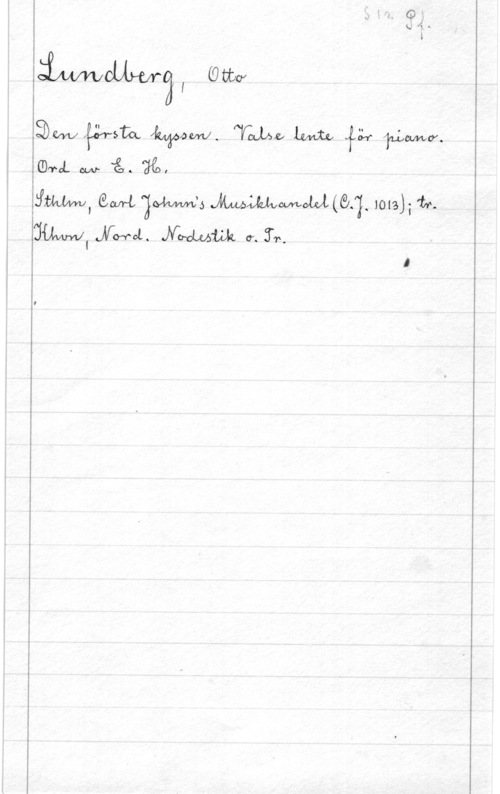 S 12 Pf.
Lundberg, Otto
Den första kyssen. Valse lente för piano.
Ord av E. H.
Sthlm, Carl Johnn's Musikhandel (C.J. 1013); tr.
Khvn, Nord. Nodestik o. Tr.